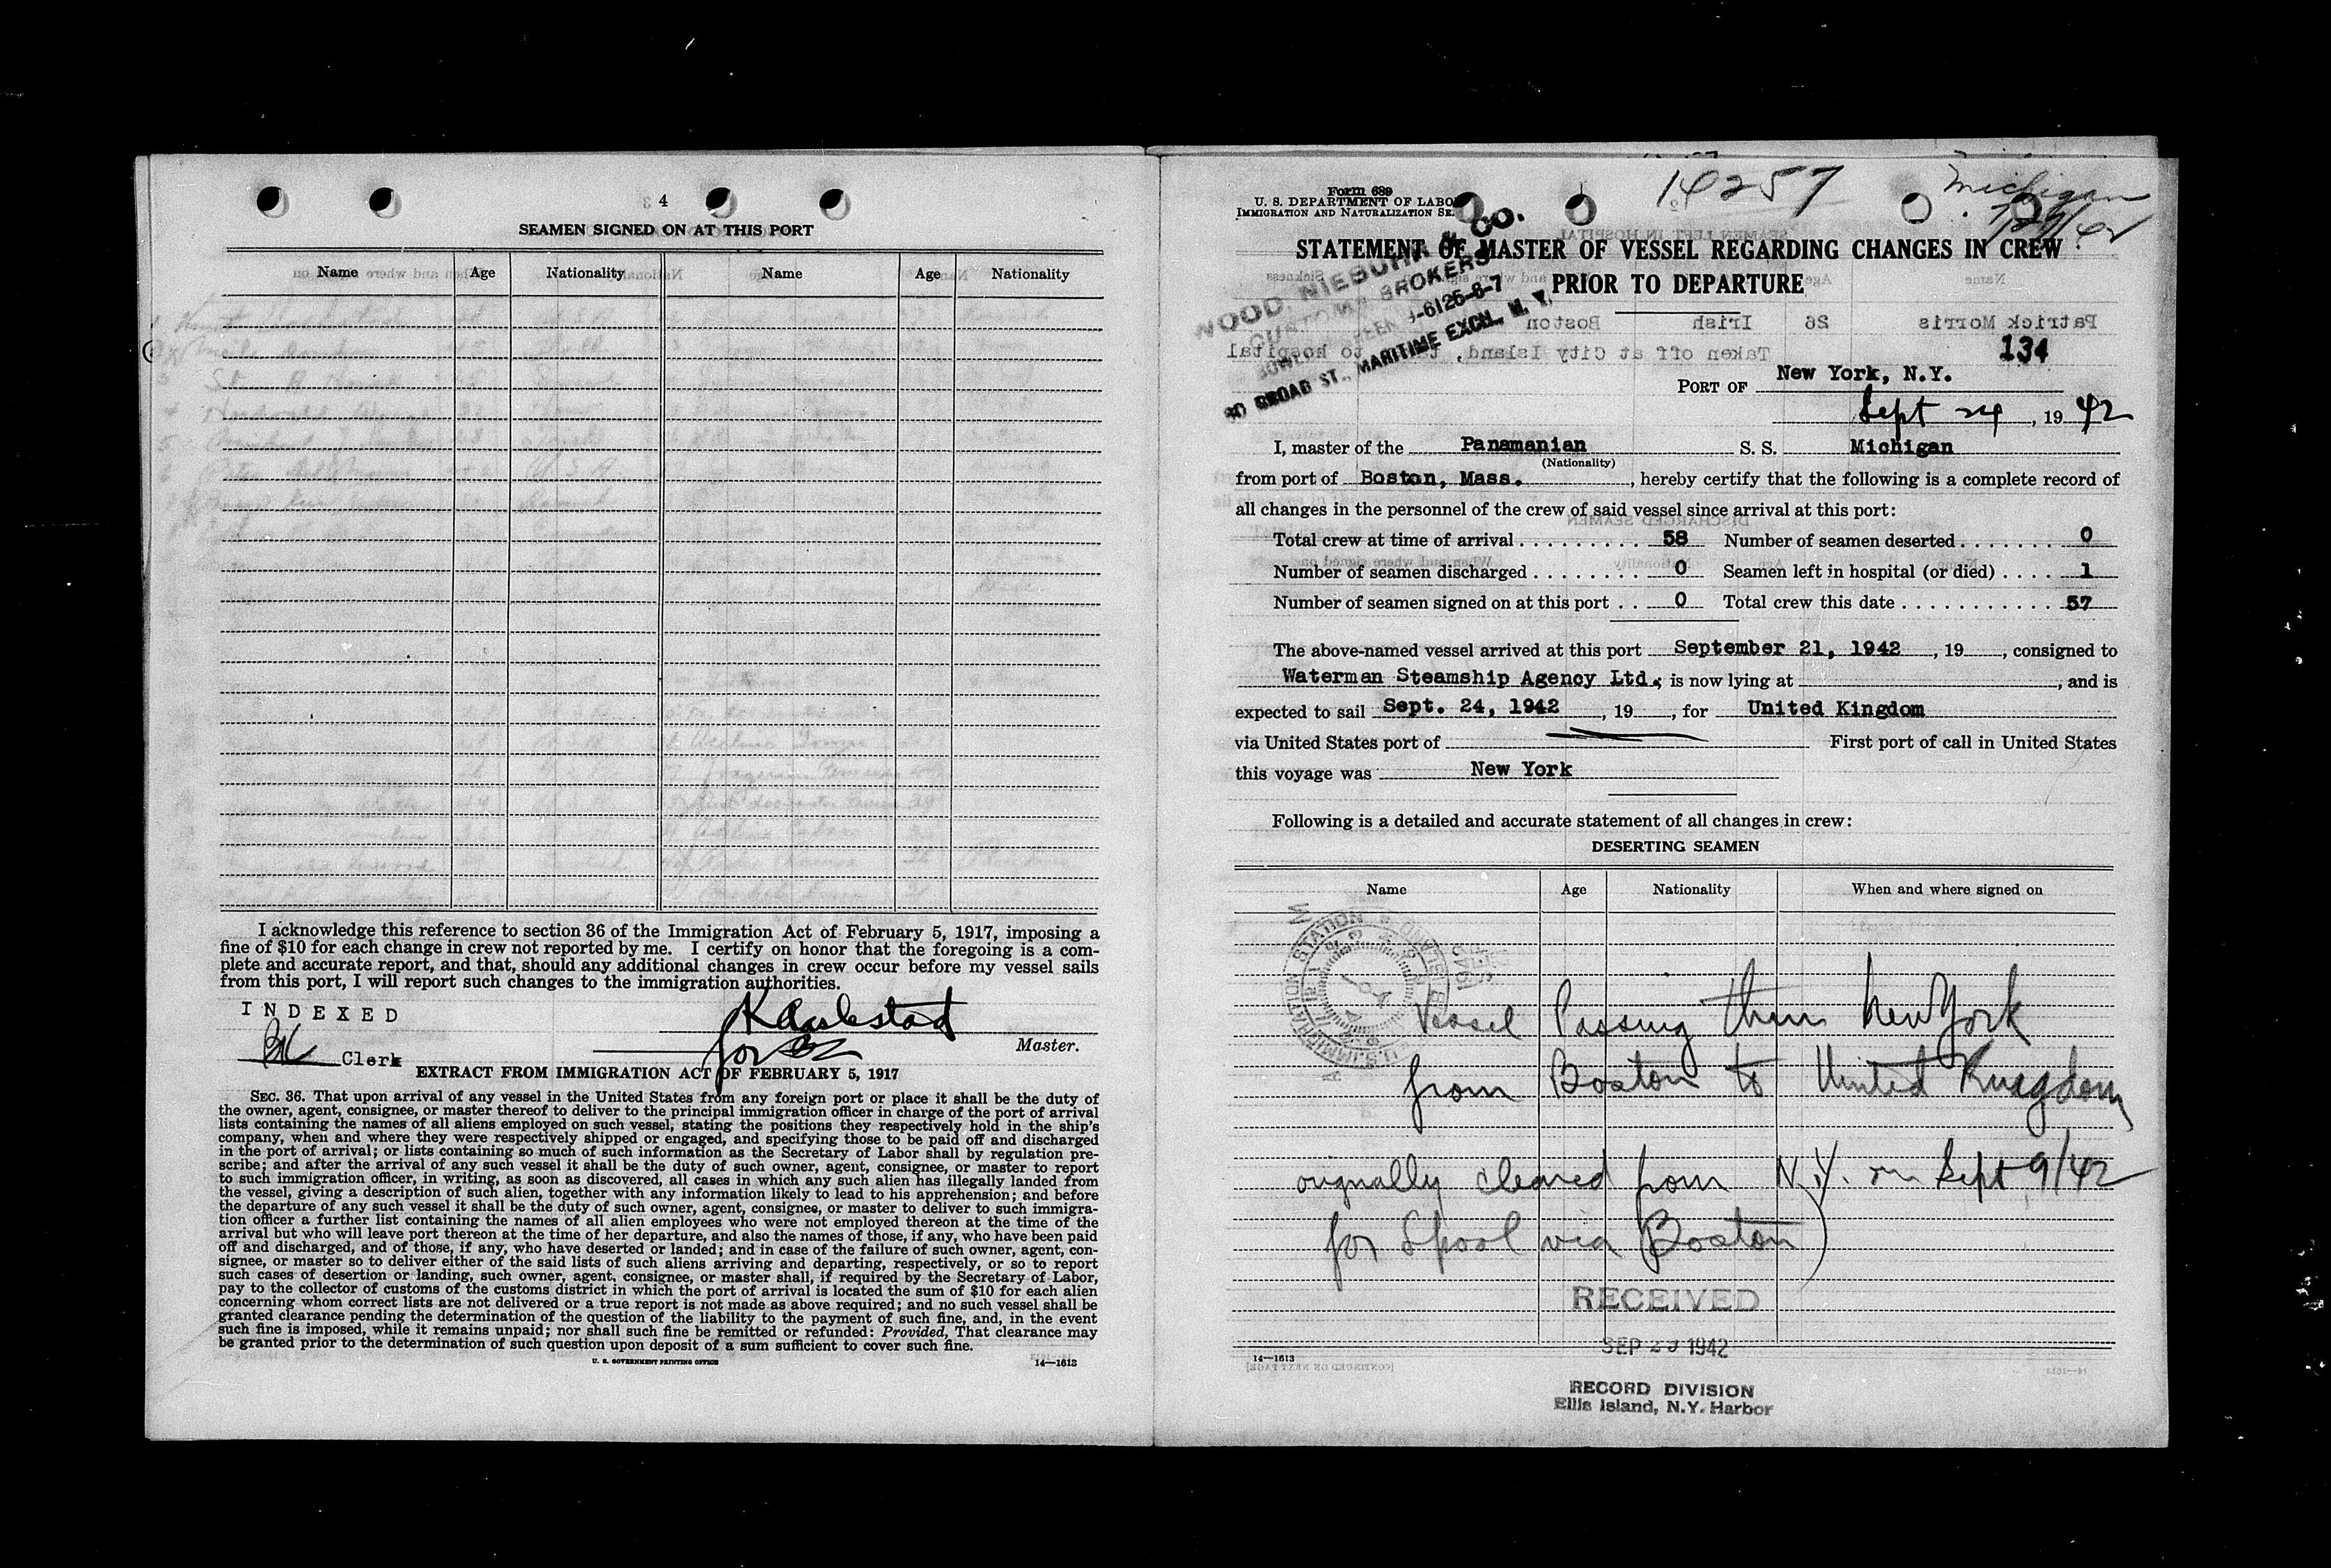 4
SEAMEN SIGNED ON AT THIS PORT
Name Age Nationality Name Age Nationality
I acknowledge this reference to section 36 of the Immigration Act of February 5, 1917, imposing a
fine of $10 for each change in crew not reported by me. I certify on honor that the foregoing is a com-
plete and accurate report, and that, should any additional changes in crew occur before my vessel sails
from this port, I will report such changes to the immigration authorities.
INDEXED
K Aaslestad
for
Master.
Clerk
EXTRACT FROM IMMIGRATION ACT OF FEBRUARY 5, 1917
SEC. 36. That upon arrival of any vessel in the United States from any foreign port or place it shall be the duty of
the owner, agent, consignee, or master thereof to deliver to the principal immigration officer in charge of the port of arrival
lists containing the names of all aliens employed on such vessel, stating the positions they respectively hold in the ship's
company, when and where they were respectively shipped or engaged, and specifying those to be paid off and discharged
in the port of arrival; or lists containing so much of such information as the Secretary of Labor shall by regulation pre-
scribe; and after the arrival of any such vessel it shall be the duty of such owner, agent, consignee, or master to report
to such immigration officer, in writing, as soon as discovered, all cases in which any such alien has illegally landed from
the vessel, giving a description of such alien, together with any information likely to lead to his apprehension; and before
the departure of any such vessel it shall be the duty of such owner, agent, consignee, or master to deliver to such immigra-
tion officer a further list containing the names of all alien employees who were not employed thereon at the time of the
arrival but who will leave port thereon at the time of her departure, and also the names of those, if any, who have been paid
off and discharged, and of those, if any, who have deserted or landed; and in case of the failure of such owner, agent, con-
signee, or master so to deliver either of the said lists of such aliens arriving and departing, respectively, or so to report
such cases of desertion or landing, such owner, agent, consignee, or master shall, if required by the Secretary of Labor,
pay to the collector of customs of the customs district in which the port of arrival is located the sum of $10 for each alien
concerning whom correct lists are not delivered or a true report is not made as above required; and no such vessel shall be
granted clearance pending the determination of the question of the liability to the payment of such fine, and, in the event
such fine is imposed, while it remains unpaid; nor shall such fine be remitted or refunded: Provided, That clearance may
be granted prior to the determination of such question upon deposit of a sum sufficient to cover such fine.
U. S. GOVERNMENT PRINTING OFFICE 14—1613
Form 689
U. S. DEPARTMENT OF LABO
IMMIGRATION AND NATURALIZATION SE
14257
Michigan
STATEMENT OF MASTER OF VESSEL REGARDING CHANGES IN CREW
PRIOR TO DEPARTURE
WOOD NIEBUHR & CO.
CUSTOMS BROKERS
-6125-6-7
BROAD ST., MARITIME EXCH., N. Y.
134
PORT OF New York, N.Y.
Sept 24, 1942
I, master of the Panamanian S. S. Michigan
(Nationality)
from port of Boston, Mass., hereby certify that the following is a complete record of
all changes in the personnel of the crew of said vessel since arrival at this port:
Total crew at time of arrival . . . . . . . . . 58 Number of seamen deserted . . . . . . . 0
Number of seamen discharged . . . . . . . . 0 Seamen left in hospital (or died) . . . . 1
Number of seamen signed on at this port . . 0 Total crew this date . . . . . . . . . . . . 57
The above-named vessel arrived at this port September 21, 1942, 19, consigned to
Waterman Steamship Agency Ltd.; is now lying at , and is
expected to sail Sept. 24, 1942, 19, for United Kingdom
via United States port of First port of call in United States
this voyage was New York
Following is a detailed and accurate statement of all changes in crew:
DESERTING SEAMEN
Name Age Nationality When and where signed on
U.S. IMMIGRATION STATION
Vessel Passing thru New York
from Boston to United Kingdom
originally cleared from N.Y. on Sept 9/42
for Lpool via Boston)
RECEIVED
SEP 1942
14—1613
RECORD DIVISION
Ellis Island, N.Y. Harbor